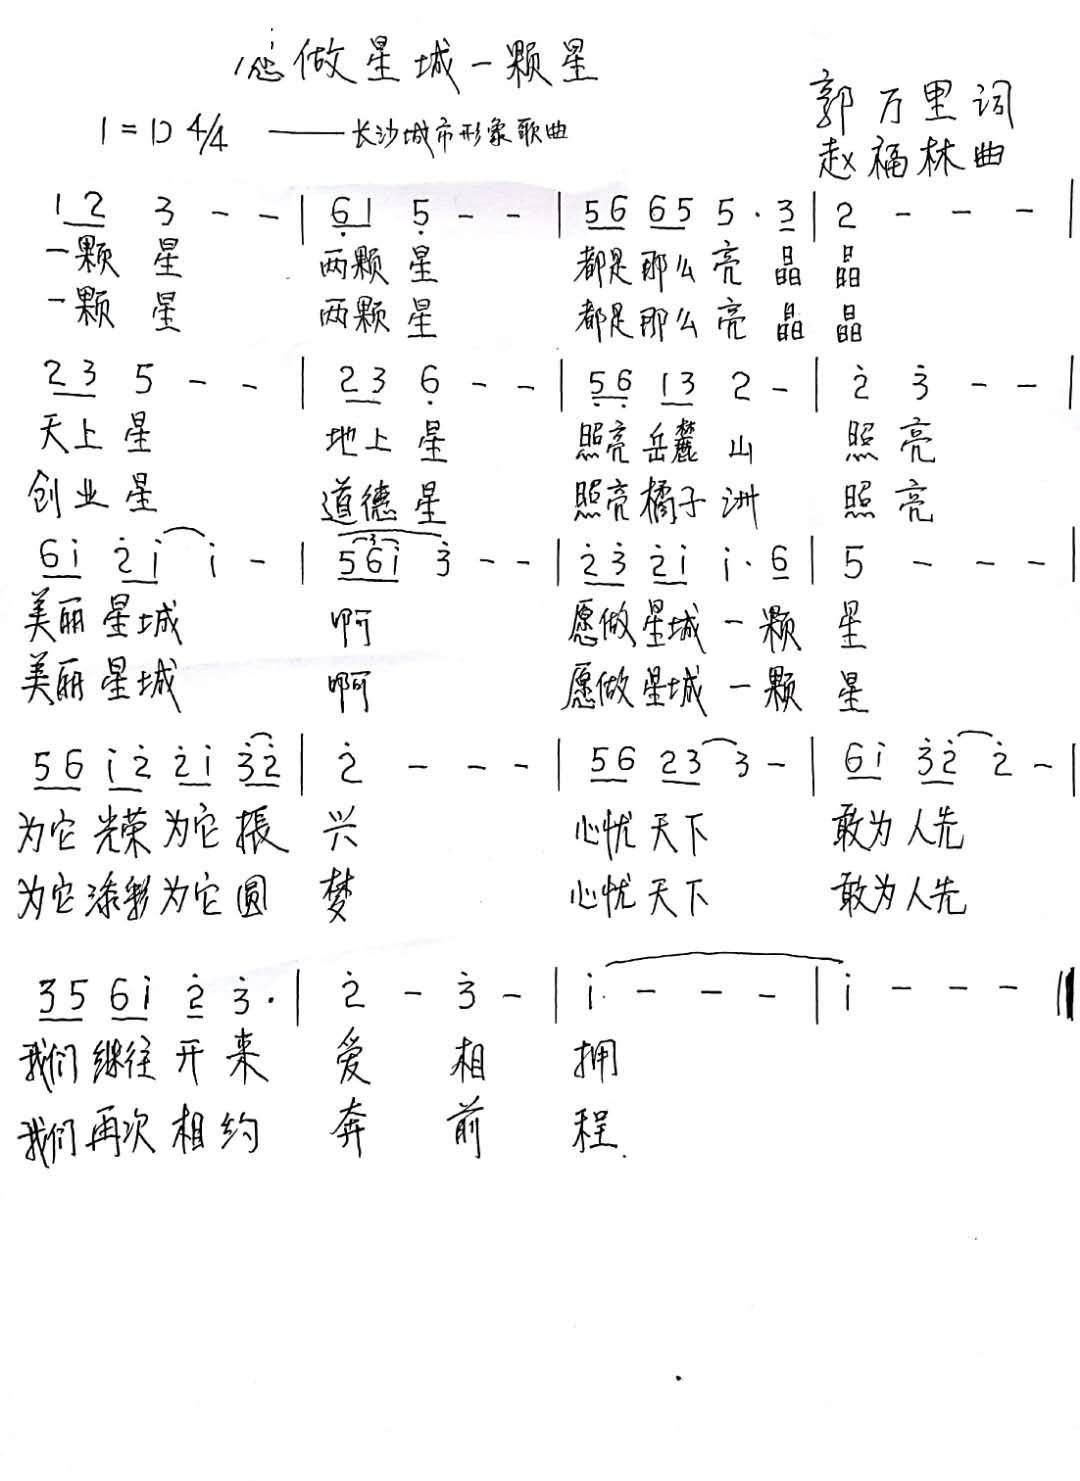 愿做星城一颗星
1=D 4/4 ——长沙城市形象歌曲
郭万里词
赵福林曲
1 2 3 - - | 6̣ 1 5̣ - - | 5 6 6 5 5 · 3 | 2 - - - |
一颗 星 两颗 星 都是那么亮 晶 晶
一颗 星 两颗 星 都是那么亮 晶 晶
2 3 5 - - | 2 3 6̣ - - | 5̣ 6̣ 1 3 2 - | 2̇ 3̇ - - |
天上 星 地上 星 照亮岳麓 山 照 亮
创业 星 道德 星 照亮橘子 洲 照 亮
6 1̇ 2̇ 1̇ 1̇ - | 5 6 1̇ 3̇ - - | 2̇ 3̇ 2̇ 1̇ 1̇ · 6 | 5 - - - |
美丽 星城 啊 愿做星城 一颗 星
美丽 星城 啊 愿做星城 一颗 星
5 6 1̇ 2̇ 2̇ 1̇ 3̇ 2̇ | 2̇ - - - | 5 6 2 3 3 - | 6 1̇ 3̇ 2̇ 2̇ - |
为它 光荣 为它 振 兴 心忧 天下 敢为人先
为它 添彩 为它 圆 梦 心忧 天下 敢为人先
3 5 6 1̇ 2̇ 3̇ · | 2̇ - 3̇ - | 1̇ - - - | 1̇ - - - ‖
我们 继往 开 来 爱 相 拥
我们 再次 相 约 奔 前 程